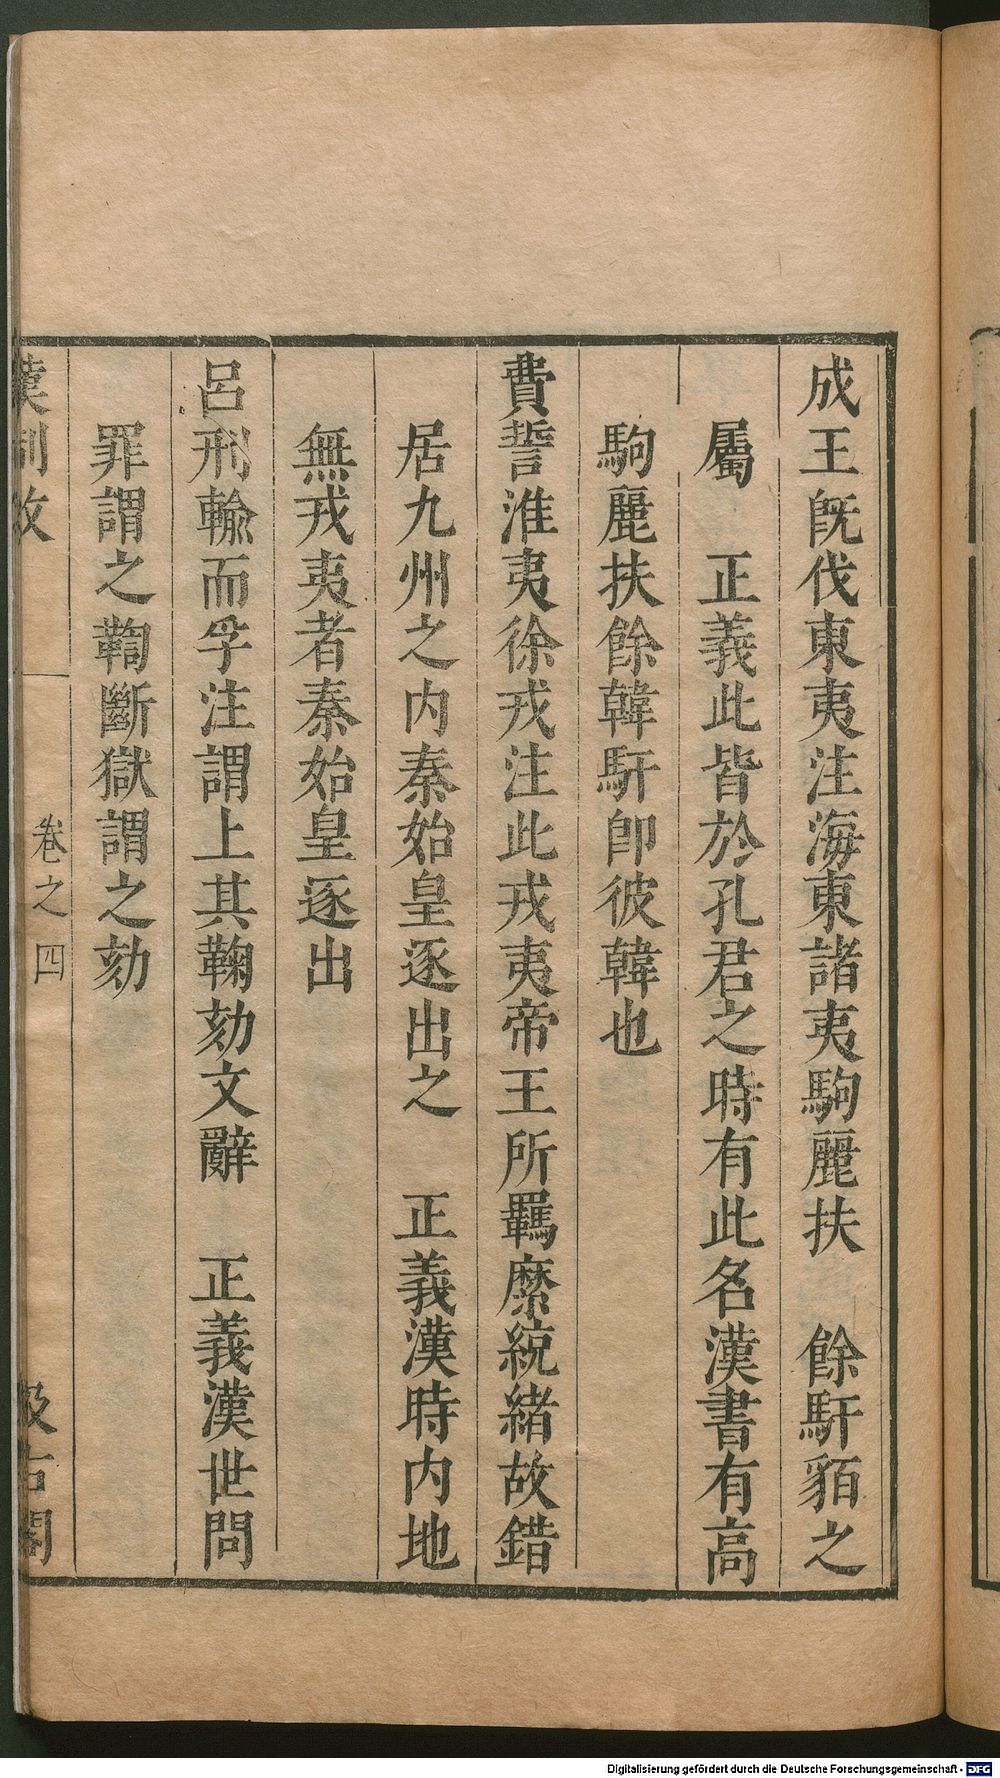 成王旣伐東夷注海東諸夷駒麗扶　餘馯貊之
屬　正義此皆於孔君之時有此名漢書有高
駒麗扶餘韓馯卽彼韓也
費誓淮夷徐戎注此戎夷帝王所羈縻統緒故錯
居九州之内秦始皇逐出之　正義漢時内地
無戎夷者秦始皇逐出
呂刑輸而孚注謂上其鞫劾文辭　正義漢世問
罪謂之鞫斷獄謂之劾
漢制攷　卷之四　汲古閣
Digitalisierung gefördert durch die Deutsche Forschungsgemeinschaft - DFG